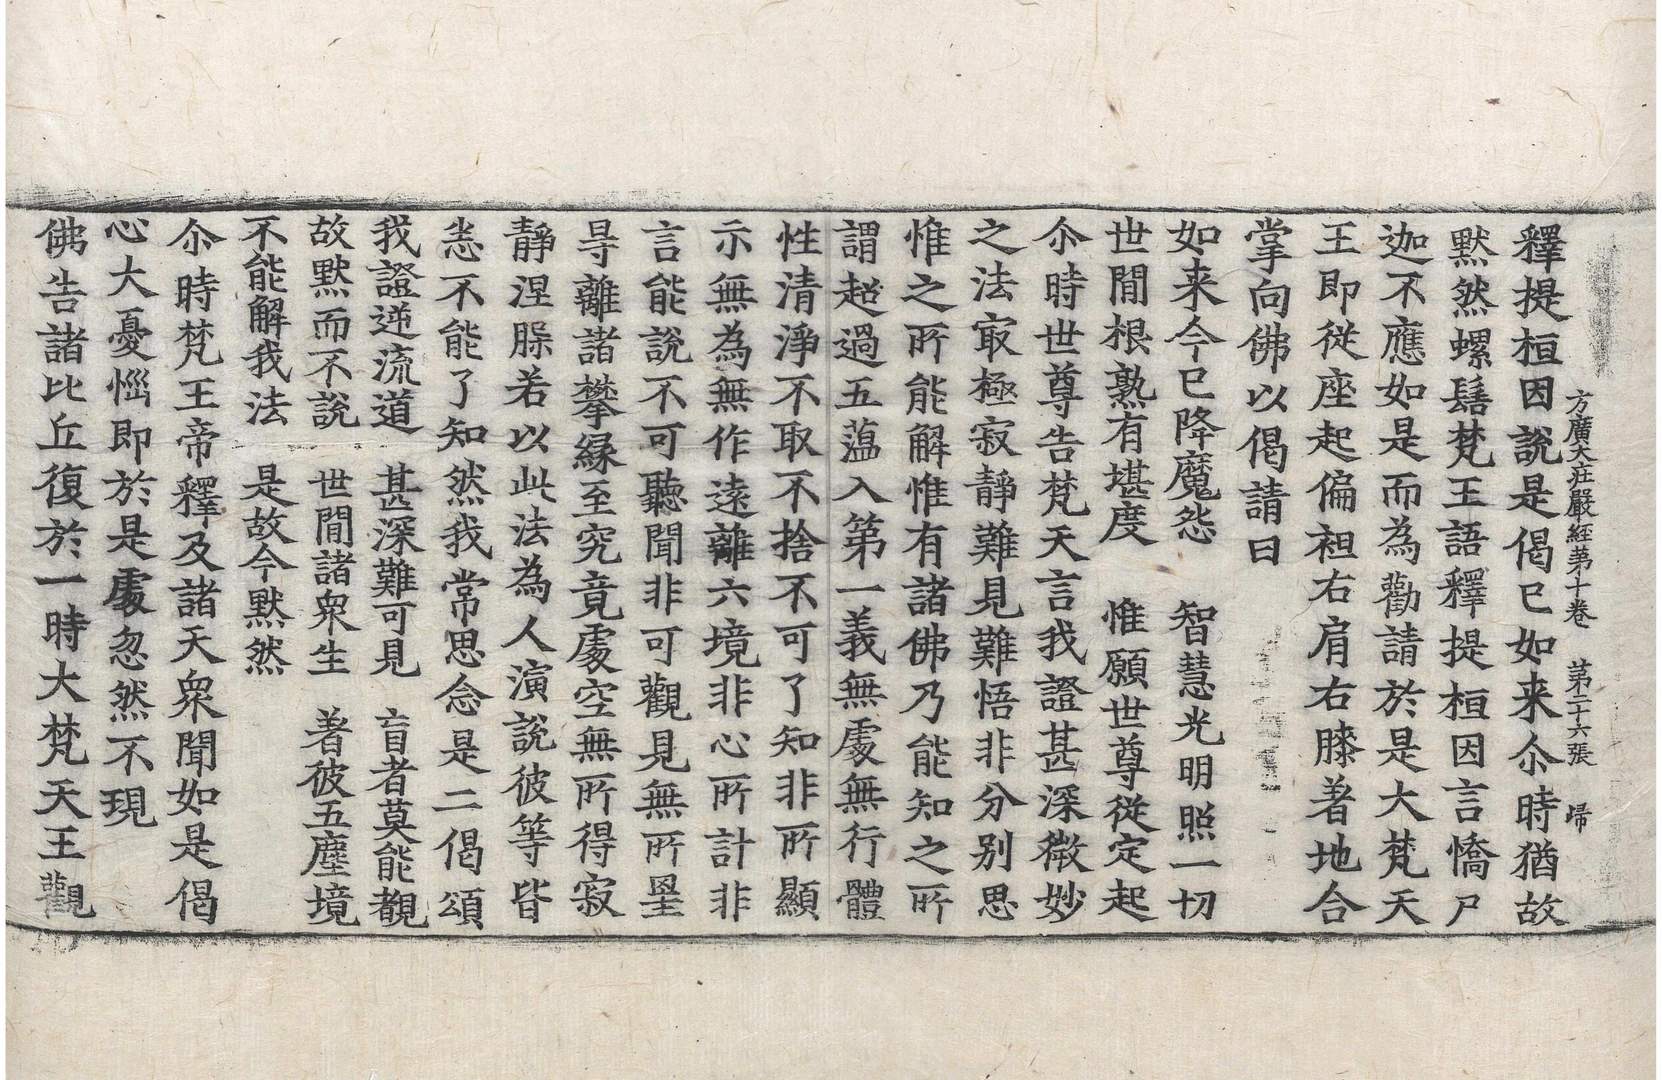 方廣大莊嚴經第十卷　第二十六張　歸
釋提桓因說是偈已如来尒時猶故
默然螺髻梵王語釋提桓因言憍尸
迦不應如是而為勸請於是大梵天
王即從座起偏袒右肩右膝著地合
掌向佛以偈請曰
如来今已降魔怨　智慧光明照一切
世間根熟有堪度　惟願世尊從定起
尒時世尊告梵天言我證甚深微妙
之法㝡極寂靜難見難悟非分別思
惟之所能解惟有諸佛乃能知之所
謂超過五蕰入第一義無處無行體
性清淨不取不捨不可了知非所顯
示無為無作遠離六境非心所計非
言能說不可聽聞非可觀見無所罣
㝵離諸攀緣至究竟處空無所得寂
靜涅槃若以此法為人演說彼等皆
悉不能了知然我常思念是二偈頌
我證逆流道　甚深難可見　盲者莫能覩
故默而不說　世間諸衆生　著彼五塵境
不能解我法　是故今默然
尒時梵王帝釋及諸天衆聞如是偈
心大憂惱即於是處忽然不現
佛告諸比丘復於一時大梵天王觀